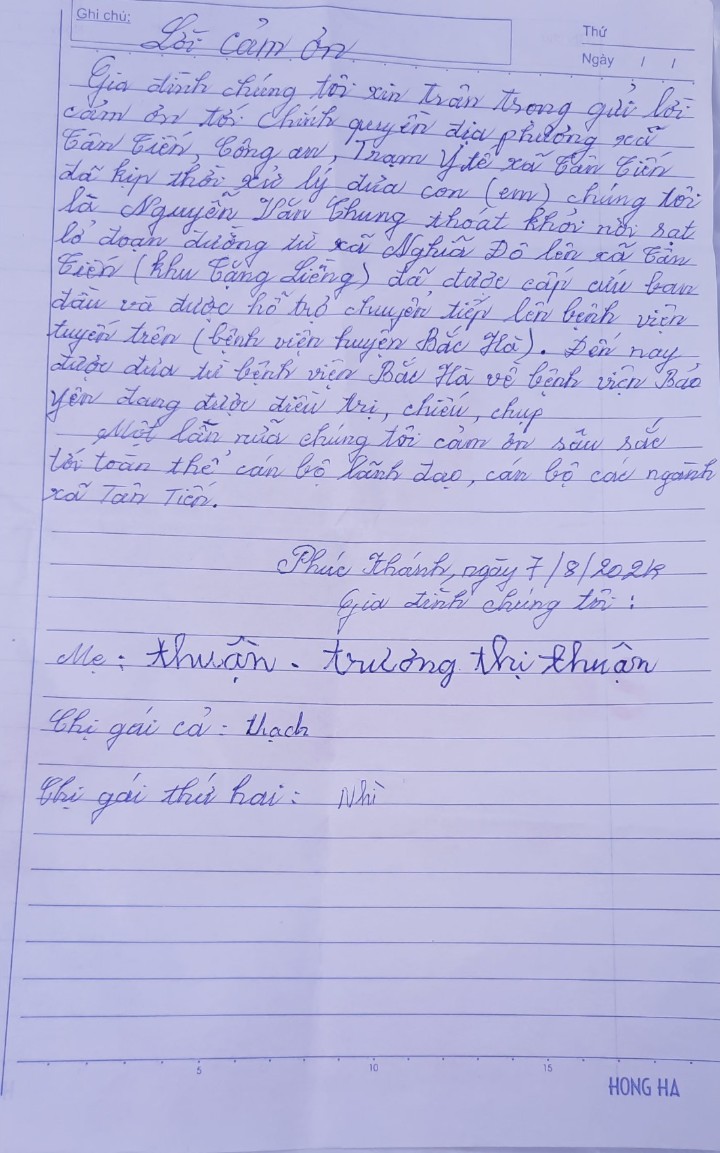 Ghi chú:
Thứ
Ngày / /
Lời cảm ơn
Gia đình chúng tôi xin trân trọng gửi lời
cảm ơn tới chính quyền địa phương xã
Tân Tiến, Công an, Trạm Y tế xã Tân Tiến
đã kịp thời xử lý đưa con (em) chúng tôi
là Nguyễn Văn Chung thoát khỏi nơi sạt
lở đoạn đường từ xã Nghĩa Đô lên xã Tân
Tiến (khu Tặng Liềng) đã được cấp cứu ban
đầu và được hỗ trợ chuyển tiếp lên bệnh viện
tuyến trên (bệnh viện huyện Bắc Hà). Đến nay
được đưa từ bệnh viện Bắc Hà về bệnh viện Bảo
Yên đang được điều trị, chiếu, chụp
Một lần nữa chúng tôi cảm ơn sâu sắc
tới toàn thể cán bộ lãnh đạo, cán bộ các ngành
xã Tân Tiến.
Phúc Khánh, ngày 7/8/
Gia đình chúng tôi:
Mẹ: thuận - trương thị thuận
Chị gái cả: thạch
Chị gái thứ hai: Nhì
5 10 15
HONG HA